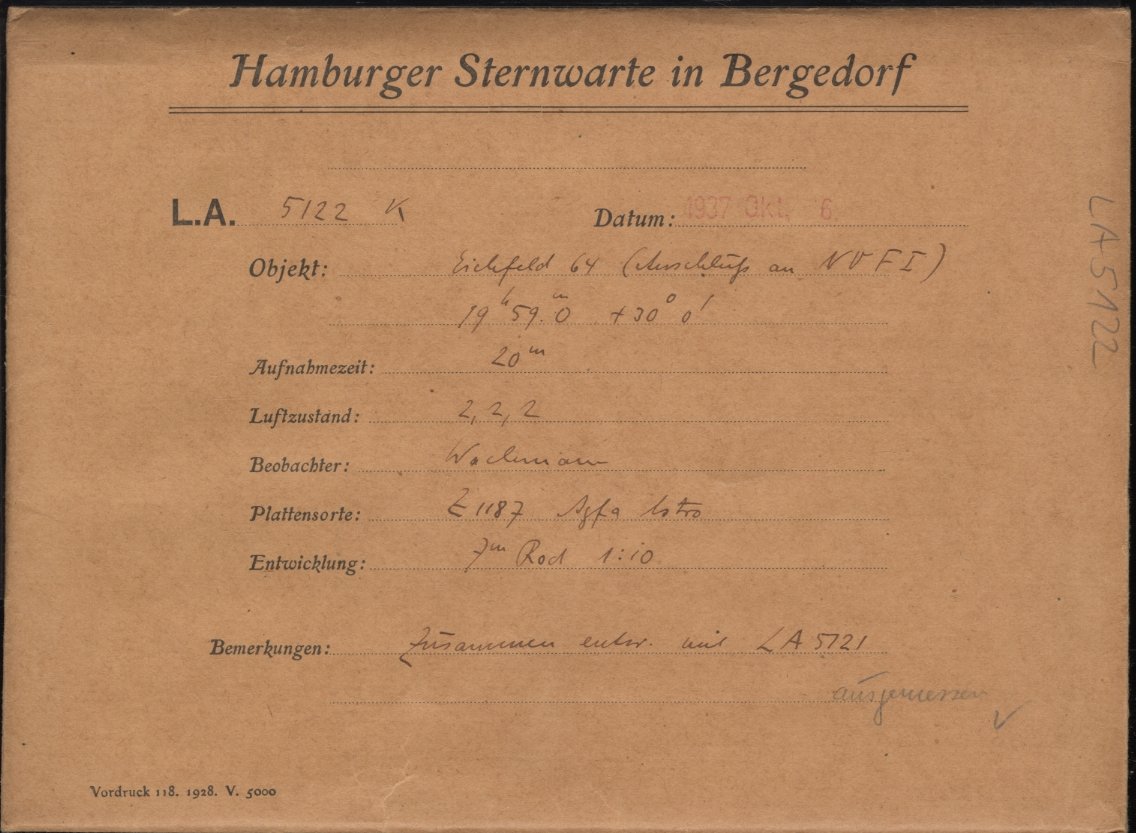 Hamburger Sternwarte in Bergedorf
L.A. 5122 K Datum: 1937 Okt. 6.
Objekt: Eichfeld 64 (Anschluß an NVFI)
19h 59.m0 +30° 0'
Aufnahmezeit: 20m
Luftzustand: 2, 2, 2
Beobachter: Wachmann
Plattensorte: E 1187 Agfa Astro
Entwicklung: 7m Rod 1:10
Bemerkungen: Zusammen entw. mit LA 5121
ausgemessen
Vordruck 118. 1928. V. 5000
LA 5122